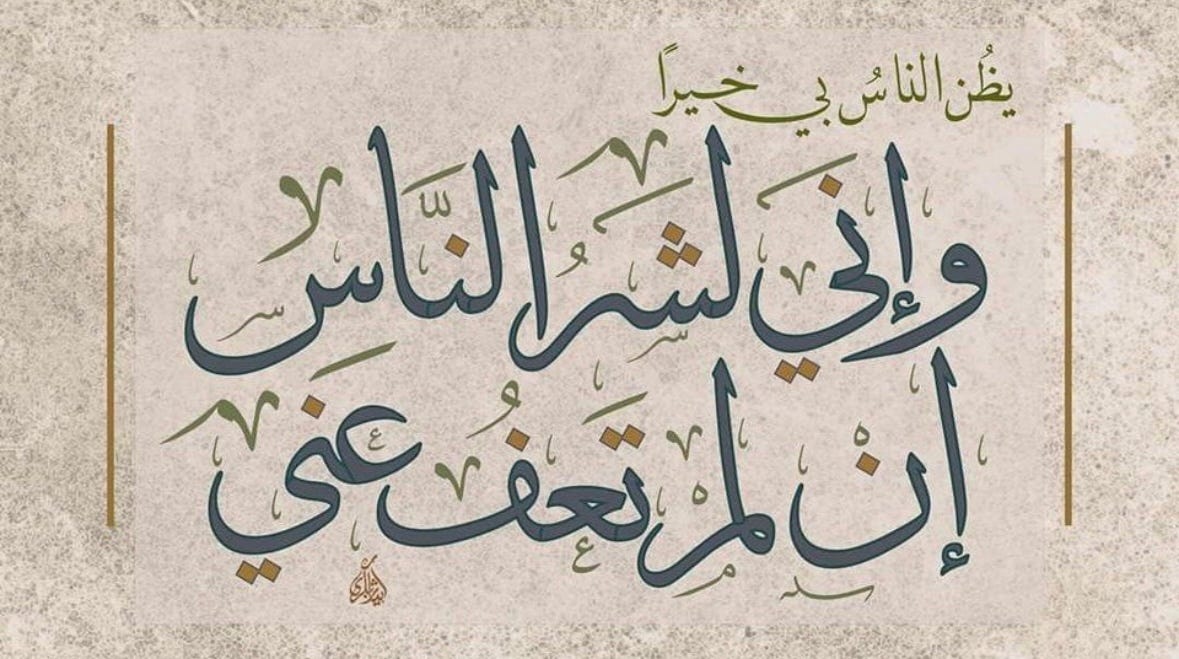 يظُن الناسُ بي خيراً
وإني لشرُ النَّاس
إنْ لمْ تعفُ عني